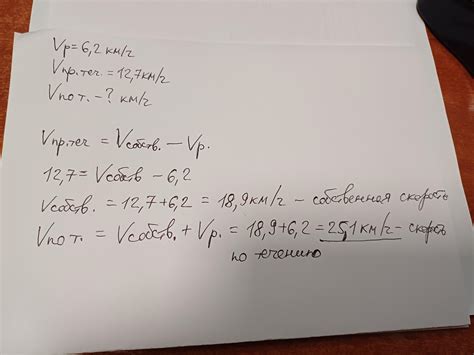 Vр = 6,2 км/г
Vпр.теч. = 12,7 км/г
Vпо т. - ? км/г
Vпр.теч = Vсобств. - Vр.
12,7 = Vсобств - 6,2
Vсобств. = 12,7 + 6,2 = 18,9 км/г - собственная скорость
Vпо т. = Vсобств. + Vр. = 18,9 + 6,2 = 25,1 км/г - скорость
по течению